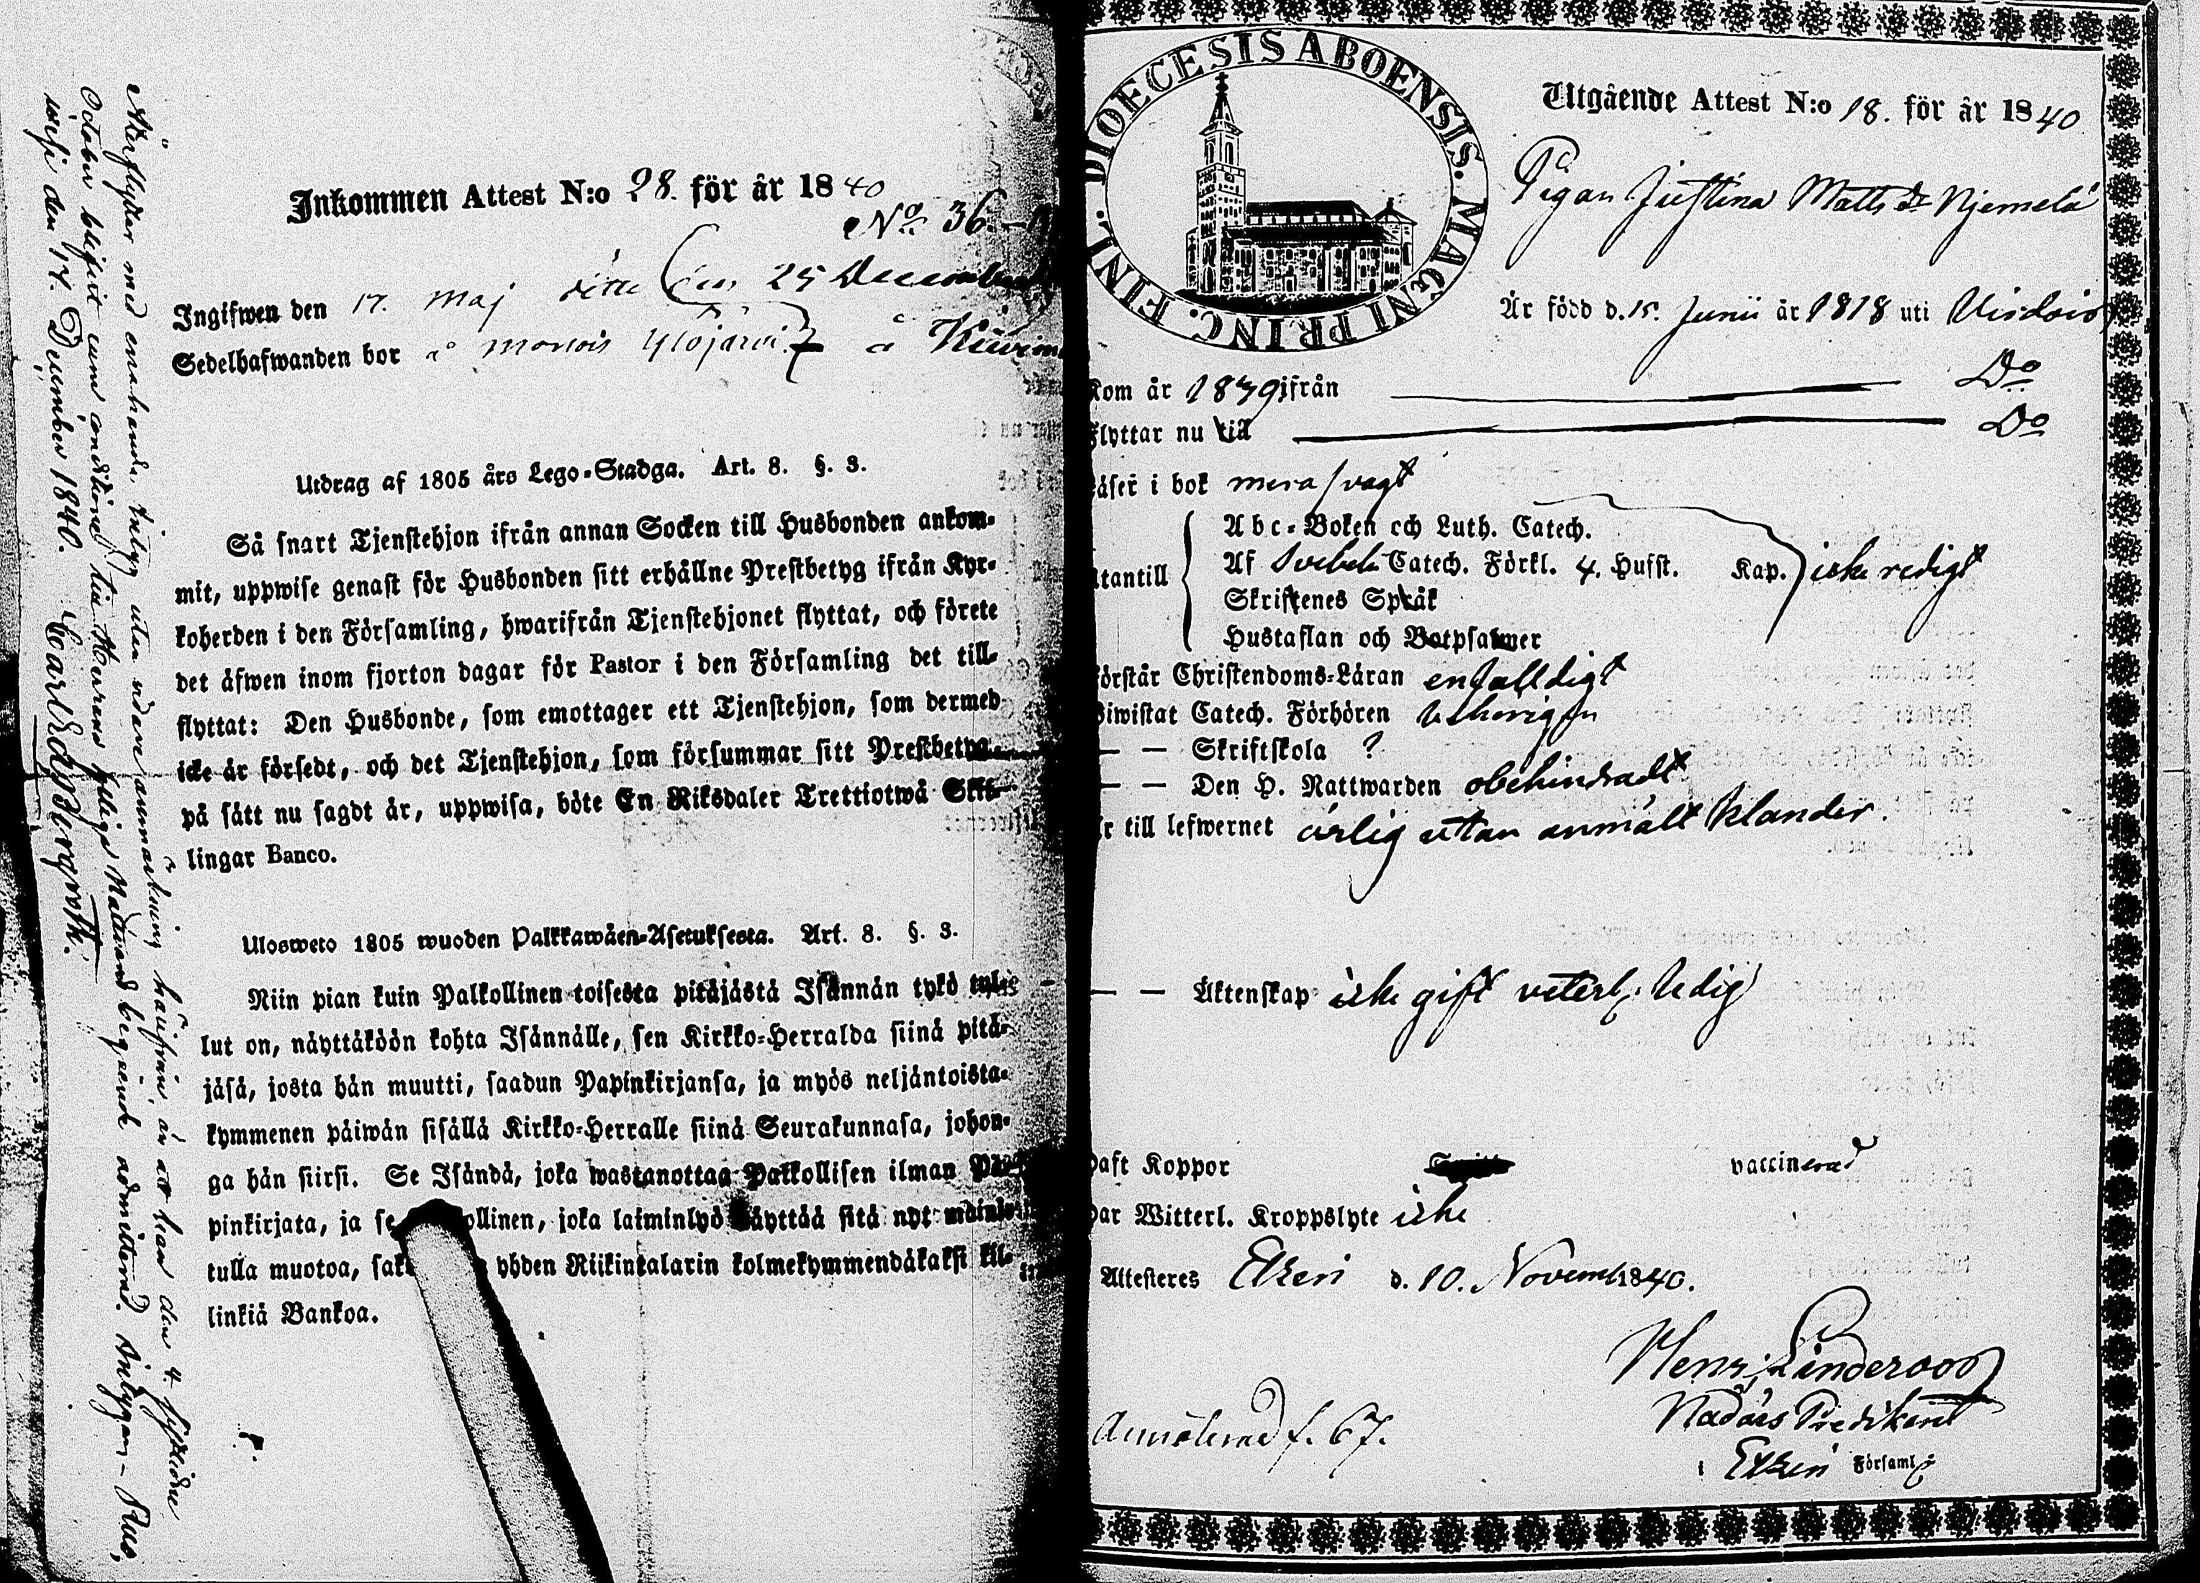 Inkommen Attest N:o 28. för år 1840
No 36.
Ingifwen den 17. Maj den 25 December
Sedelhafwanden bor å Ylöjärvi å
Utdrag af 1805 års Lego-Stadga. Art. 8. §. 3.
Så snart Tjenstehjon ifrån annan Socken till Husbonden ankom-
mit, uppwise genast för Husbonden sitt erhållne Prestbetyg ifrån Kyr-
koherden i den Församling, hwarifrån Tjenstehjonet flyttat, och förete
det äfwen inom fjorton dagar för Pastor i den Församling det till-
flyttat: Den Husbonde, som emottager ett Tjenstehjon, som dermed
icke är försedt, och det Tjenstehjon, som försummar sitt Prestbetyg
på sätt nu sagdt är, uppwisa, böte En Riksdaler Trettiotwå Skil-
lingar Banco.
Ulosweto 1805 wuoden Palkkawäen-Asetuksesta. Art. 8. §. 3.
Niin pian kuin Palkollinen toisesta pitäjästä Isännän tykö tul-
lut on, näyttäköön kohta Isännälle, sen Kirkko-Herralda siinä pitä-
jäsä, josta hän muutti, saadun Papinkirjansa, ja myös neljäntoista-
kymmenen päiwän sisällä Kirkko-Herralle siinä Seurakunnasa, johon-
ga hän siirsi. Se Isändä, joka wastanottaa Palkollisen ilman Pa-
pinkirjata, ja se ollinen, joka laiminlyö näyttää sitä nyt mainit-
tulla muotoa, sak yhden Riikintalarin kolmekymmendäkaksi kil-
linkiä Bankoa.
Återflyttar med enahanda betyg utan vidare anmärkning härifrån, än att han den 4. sistlidne
October blifvit admitterad. Betygar Ruo-
vesi den 14. December 1840. Carl Edv. Bergroth.
DIOECESIS ABOENSIS. MAGNI PRINC. FINL.
Utgående Attest N:o 18. för år 1840
Pigan Justina Matts Dr Njemelä
Är född d. 15. Junii år 1818 uti Virdois
Kom år 1839 ifrån Do
Flyttar nu till Do
Läser i bok mera svagt
Abc-Boken och Luth. Catech.
Utantill Af Svebeli Catech. Förkl. 4. Hufst. Kap. icke redigt
Skriftenes Språk
Hustaflan och Botpsalmer
Förstår Christendoms-Läran enfalldigt
Biwistat Catech. Förhören behörigen
— — Skriftskola ?
— — Den H. Nattwarden obehindradt
Är till lefwernet ärlig utan anmält klander.
— — Äktenskap icke gift veterl. ledig
Haft Koppor vaccinerad
Har Witterl. Kroppslyte icke
Attesteres Etseri d. 10. Novemb 1840.
Henr. Linderoos
Nådårs Predikant
i Etseri Församl
Annoterad f. 67.